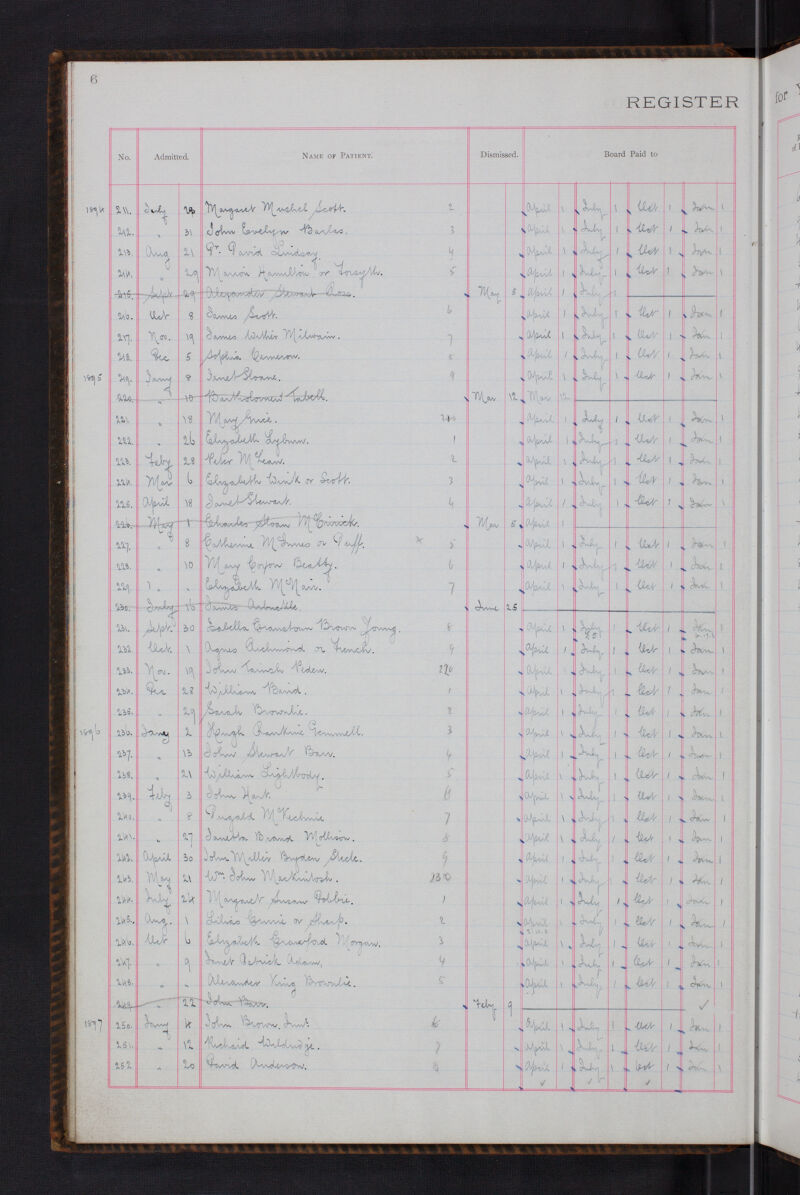 6
REGISTER
for
No. Admitted. NAME OF PATIENT. Dismissed. Board Paid to
1894 211. July 28 Margaret Scott. 2 April 1 July 1 Oct 1 Jan 1
212. " 31 John Evelyn Barlas. 3 April 1 July 1 Oct 1 Jan 1
213. Aug 21 Dr. David Lindsay. 4 April 1 July 1 Oct 1 Jan 1
214. " 29 Marion Hamilton or Forsyth. 5 April 1 July 1 Oct 1 Jan 1
215. Sept 29 Alexander Stewart Ross. May 5 April 1 July 1
216. Oct 8 James Scott. 6 April 1 July 1 Oct 1 Jan 1
217. Nov. 19 James Wither Milwain. 7 April 1 July 1 Oct 1 Jan 1
218. Dec 5 Sophia Cameron. 8 April 1 July 1 Oct 1 Jan 1
1895 219. Jany 8 Janet Sloane. 9 April 1 July 1 Oct 1 Jan 1
220. " 10 Bartholomew Mar 12 Mar 12
221. " 18 Mary Grice. 210 April 1 July 1 Oct 1 Jan 1
222. " 26 Elizabeth Lyburn. 1 April 1 July 1 Oct 1 Jan 1
223. Feby 28 Peter McLean. 2 April 1 July 1 Oct 1 Jan 1
224. Mar 6 Elizabeth Wink or Scott. 3 April 1 July 1 Oct 1 Jan 1
225. April 18 Janet Stewart. 4 April 1 July 1 Oct 1 Jan 1
226. May 1 Charles Sloan Mar 5 April 1
227. " 8 Catherine McInnes or Duff. x 5 April 1 July 1 Oct 1 Jan 1
228. " 10 Mary Beatty. 6 April 1 July 1 Oct 1 Jan 1
229. " " Elizabeth McNair. 7 April 1 July 1 Oct 1 Jan 1
230. July 16 James June 25
231. Sept. 30 Isabella Cranstoun Brown Young. 8 April 1 July 1 Oct 1 Jan 1
232. Oct. 1 Agnes Richmond or French. 9 April 1 July 1 Oct 1 Jan 1
233. Nov. 19 John Peden. 220 April 1 July 1 Oct 1 Jan 1
234. Dec 28 William Baird. 1 April 1 July 1 Oct 1 Jan 1
235. " 29 Sarah Brownlie. 2 April 1 July 1 Oct 1 Jan 1
1896 236. Jany 2 Hugh Rankine Gemmell. 3 April 1 July 1 Oct 1 Jan 1
237. " 13 John Stewart Barr. 4 April 1 July 1 Oct 1 Jan 1
238. " 21 William Lightbody. 5 April 1 July 1 Oct 1 Jan 1
239. Feby 3 John Hart. 6 April 1 July 1 Oct 1 Jan 1
240. " 8 Dugald McKechnie 7 April 1 July 1 Oct 1 Jan 1
241. " 27 Janetta Brand Mollison. 8 April 1 July 1 Oct 1 Jan 1
242. April 30 John Miller Bryden Steele. 9 April 1 July 1 Oct 1 Jan 1
243. May 21 Wm. John Mackintosh. 230 April 1 July 1 Oct 1 Jan 1
244. July 24 Margaret Susan Dobbie. 1 April 1 July 1 Oct 1 Jan 1
245. Aug. 1 Lilias or Sharp. 2 April 1 July 1 Oct 1 Jan 1
246. Oct 6 Elizabeth Crawford Morgan. 3 April 1 July 1 Oct 1 Jan 1
247. " 9 Janet Patrick Adam. 4 April 1 July 1 Oct 1 Jan 1
248. " " Alexander King Brownlie. 5 April 1 July 1 Oct 1 Jan 1
249. " 22 John Barr. Feby 9 ✓
1897 250. Jany 4 John Brown. Junr. 6 April 1 July 1 Oct 1 Jan 1
251. " 12 Richard Wildridge. 7 April 1 July 1 Oct 1 Jan 1
252. " 20 David Anderson. 8 April 1 July 1 Oct 1 Jan 1